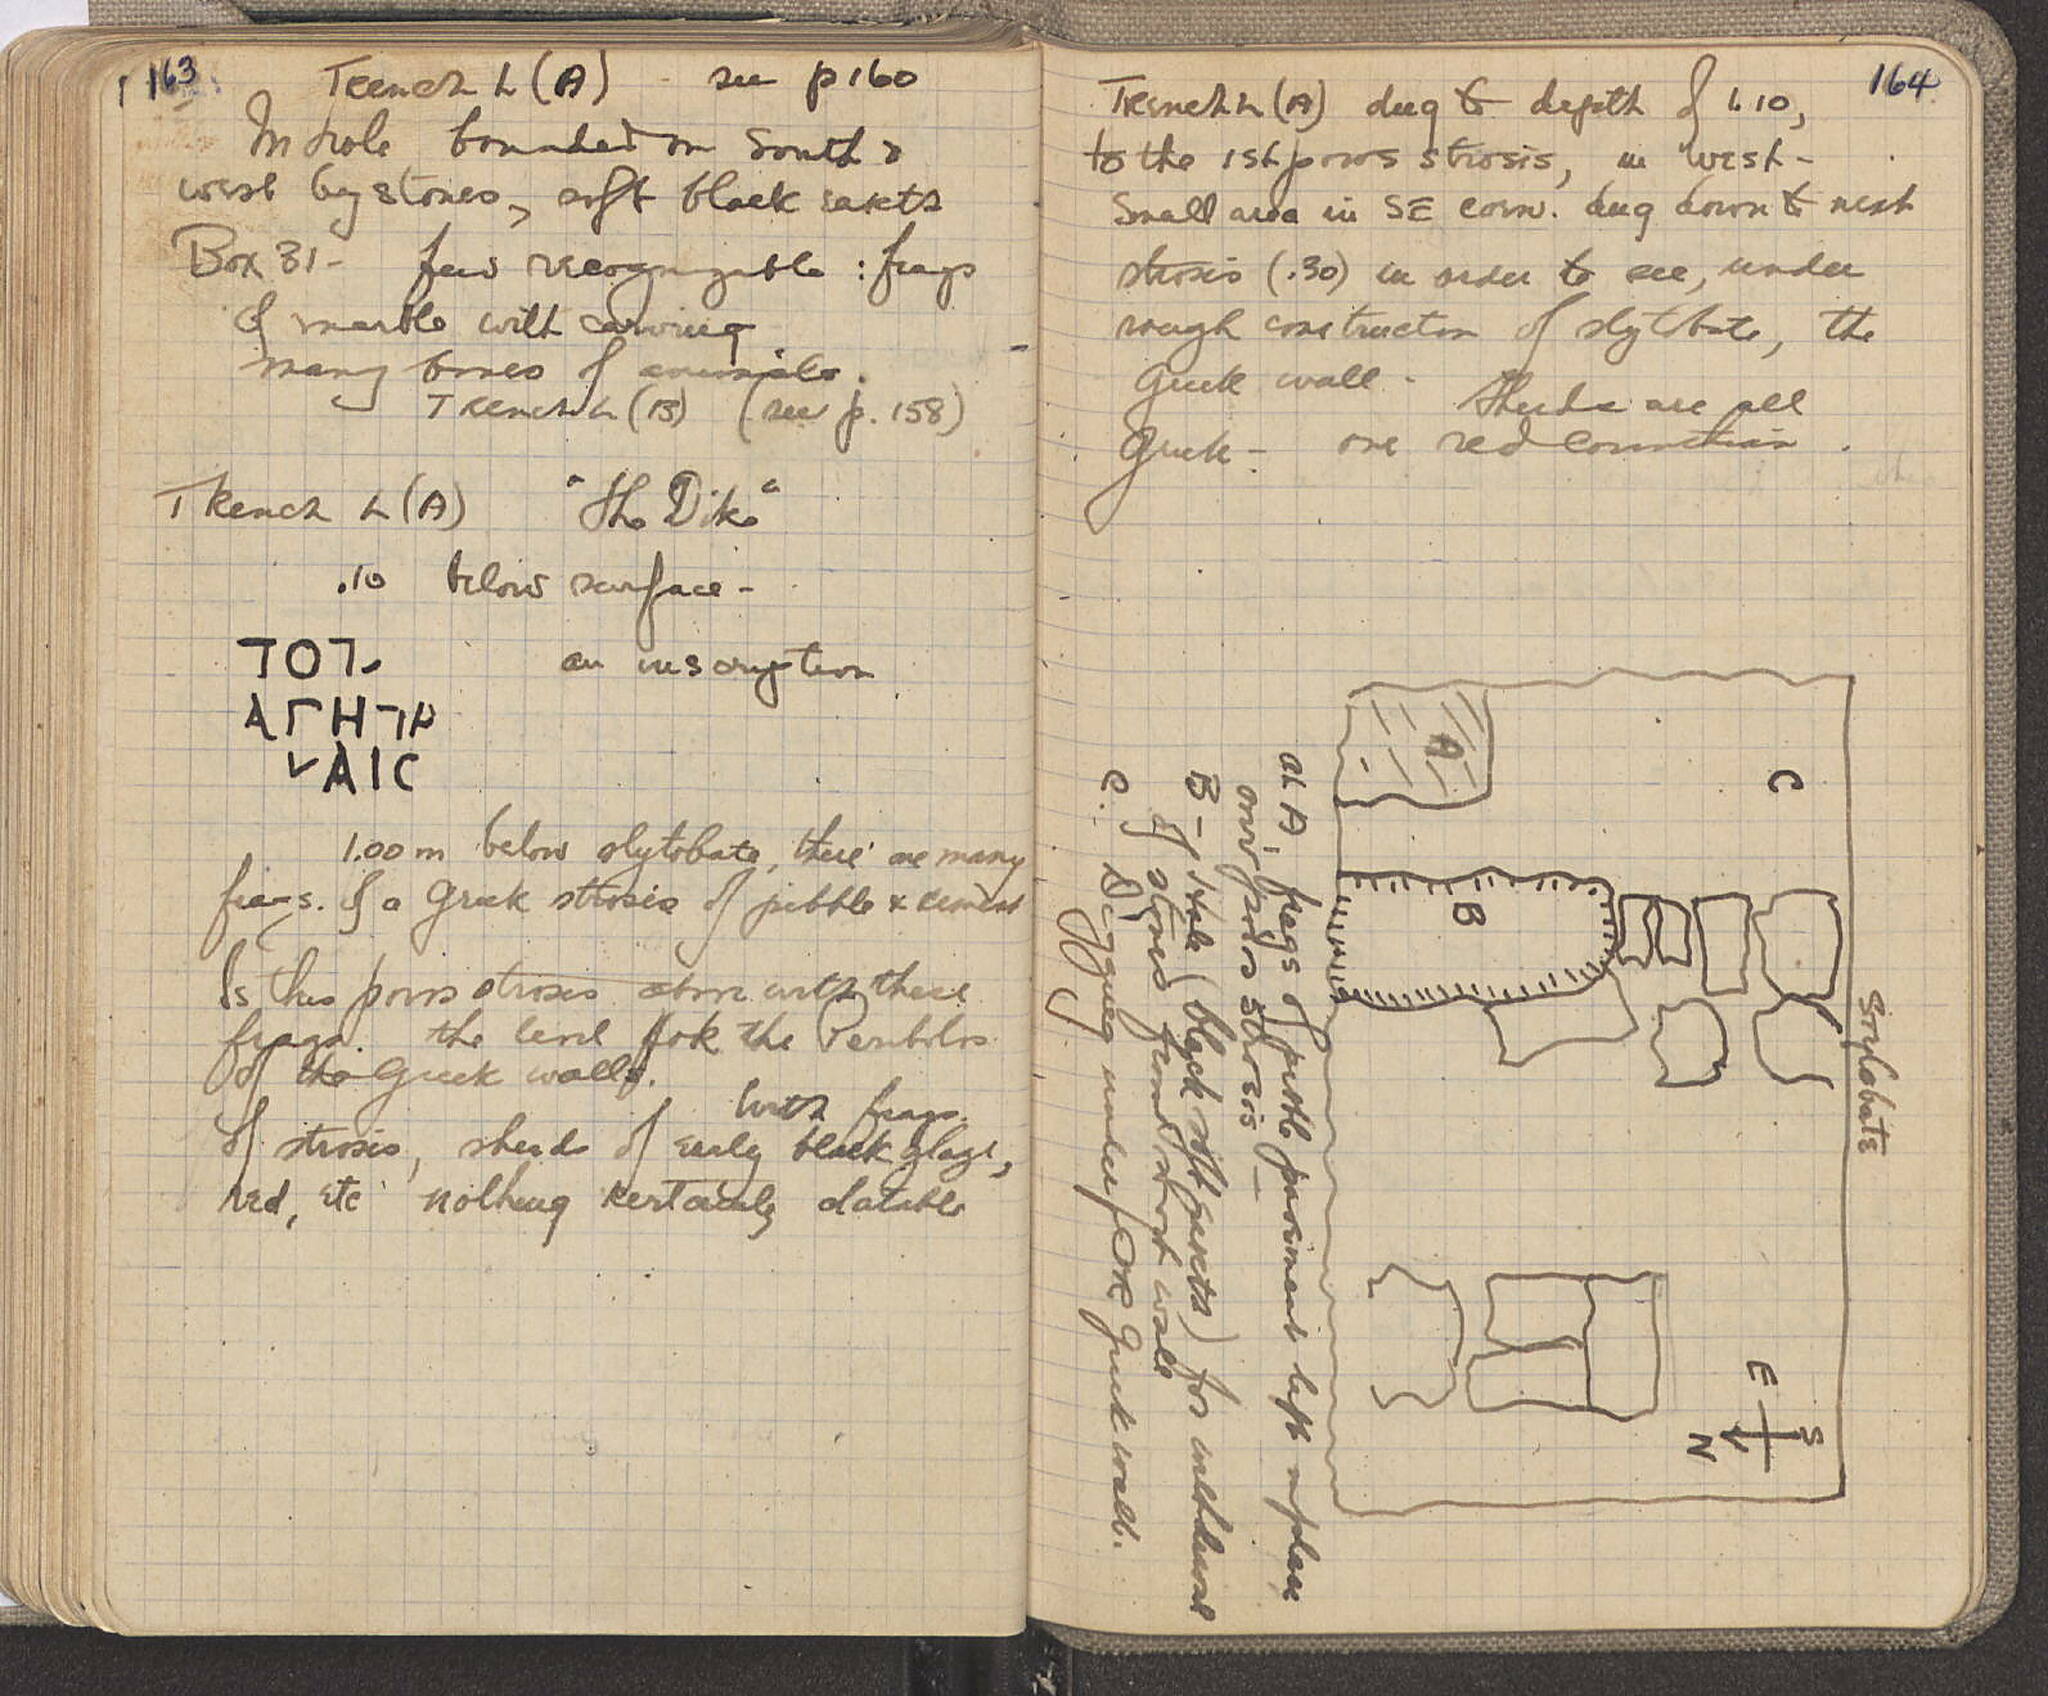 163
Trench L (A) - see p 160
In hole bounded on South &
west by stones, soft black earth
Box 31 - few recognizable : frags
of marble with carving
many bones of animals.
Trench L (B) (see p. 158)
Trench L (A) "The Dike"
.10 below surface -
an inscription
ΑΓΗ
ΑΙC
1.00 m below stylobate, there are many
frags. of a Greek strosis of pebble & cement
Is this poros strosis above with these
frags. the level for the Peribolos
of the Greek walls.
With frags.
of strosis, sherds of early black glaze,
red, etc nothing certainly datable
164
Trench L (A) dug to depth of 1.10,
to the 1st poros strosis, in west -
Small area in SE corn. dug down to next
strosis (.30) in order to see, under
rough construction of stylobate, the
Greek wall - Sherds are all
Greek - one red Corinthian.
A
C
B
Stylobate
E
S
N
at A, frags of pebble pavement left in place
over poros strosis -
B - Hole (black soft earth) for
of stones found short wall
C. Digging under for Greek wall.